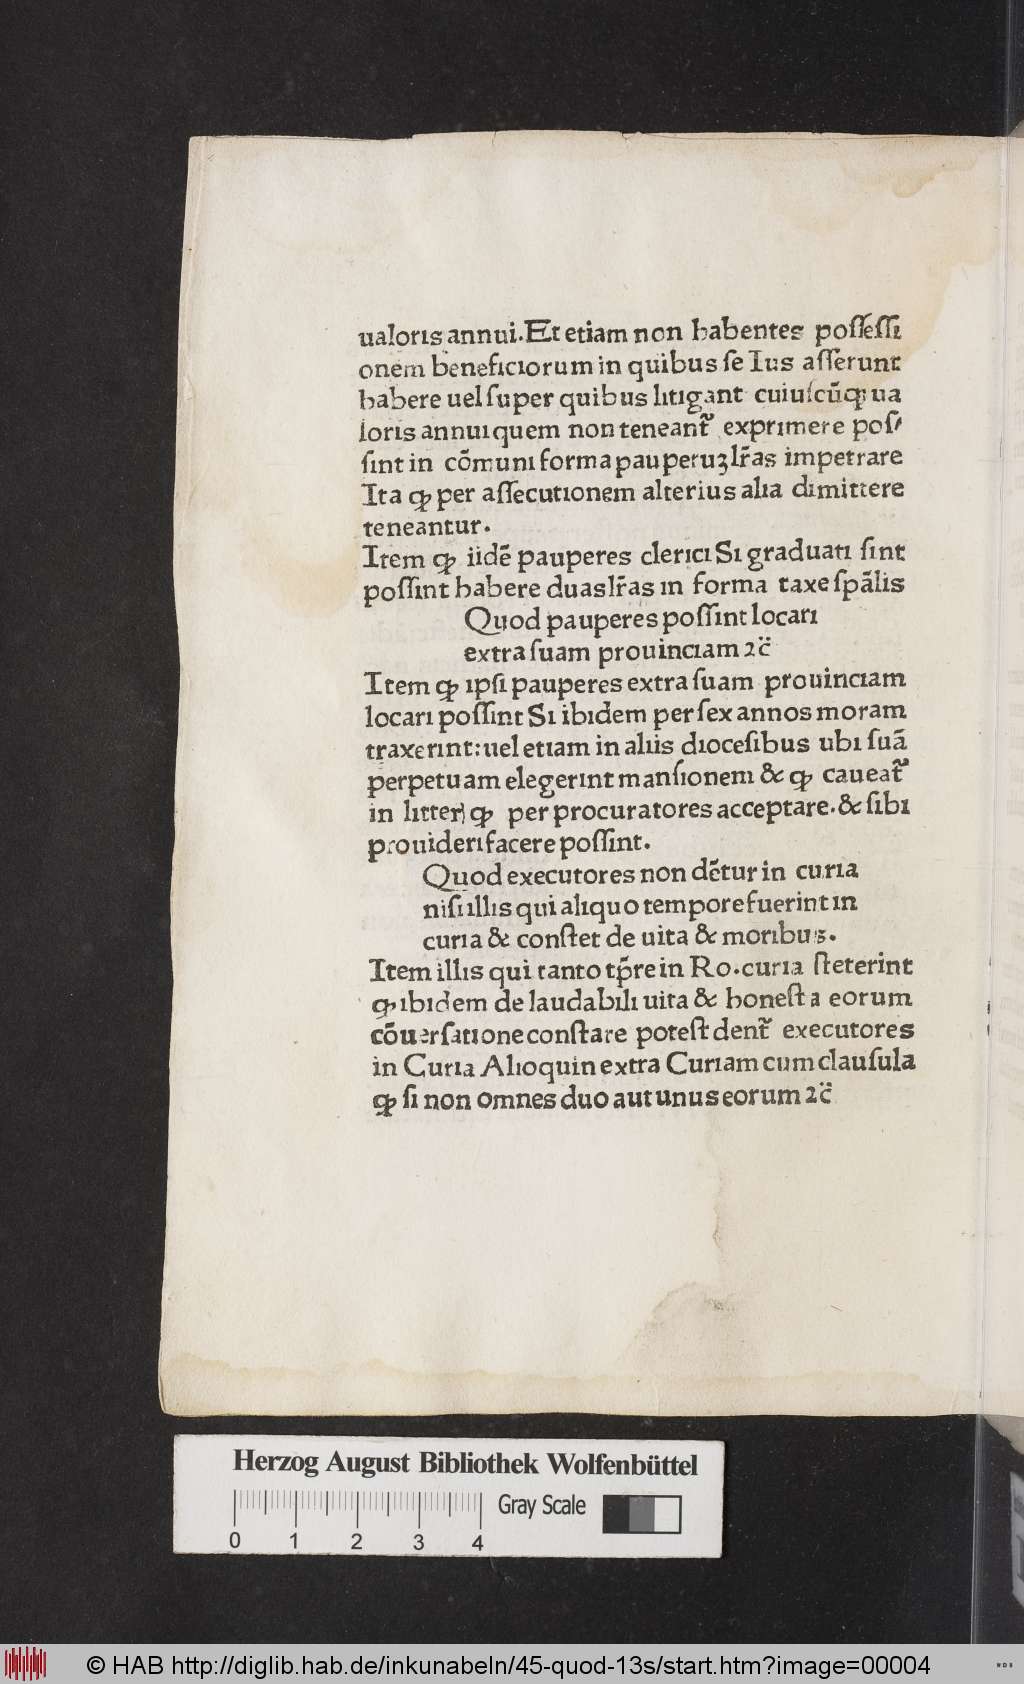 ualoris annui. Et etiam non habentes poſſeſſi
onem beneficiorum in quibus ſe Ius aſſerunt
habere uel ſuper quibus litigant cuiuſcūꝙ ua
loris annui quem non teneant᷑ exprimere poſ⸗
ſint in cōmuni forma pauperuꝫ lr̄as impetrare
Ita ꝙ per aſſecutionem alterius alia dimittere
teneantur.
Item ꝙ iidē pauperes clerici Si graduati ſint
poſſint habere duas lr̄as in forma taxe ſpālis
Quod pauperes poſſint locari
extra ſuam prouinciam ⁊c̈
Item ꝙ ipſi pauperes extra ſuam prouinciam
locari poſſint Si ibidem per ſex annos moram
traxerint: uel etiam in aliis dioceſibus ubi ſuā
perpetuam elegerint manſionem & ꝙ caueat᷑
in litter) ꝙ per procuratores acceptare. & ſibi
prouideri facere poſſint.
Quod executores non dētur in curia
niſi illis qui aliquo tempore fuerint in
curia & conſtet de uita & moribus.
Item illis qui tanto tp̄re in Ro. curia ſteterint
ꝙ ibidem de laudabili uita & honeſta eorum
cōuerſatione conſtare poteſt dent᷑ executores
in Curia Alioquin extra Curiam cum clauſula
ꝙ ſi non omnes duo aut unus eorum ⁊c̈
Herzog August Bibliothek Wolfenbüttel
Gray Scale
0 1 2 3 4
© HAB http://diglib.hab.de/inkunabeln/45-quod-13s/start.htm?image=00004